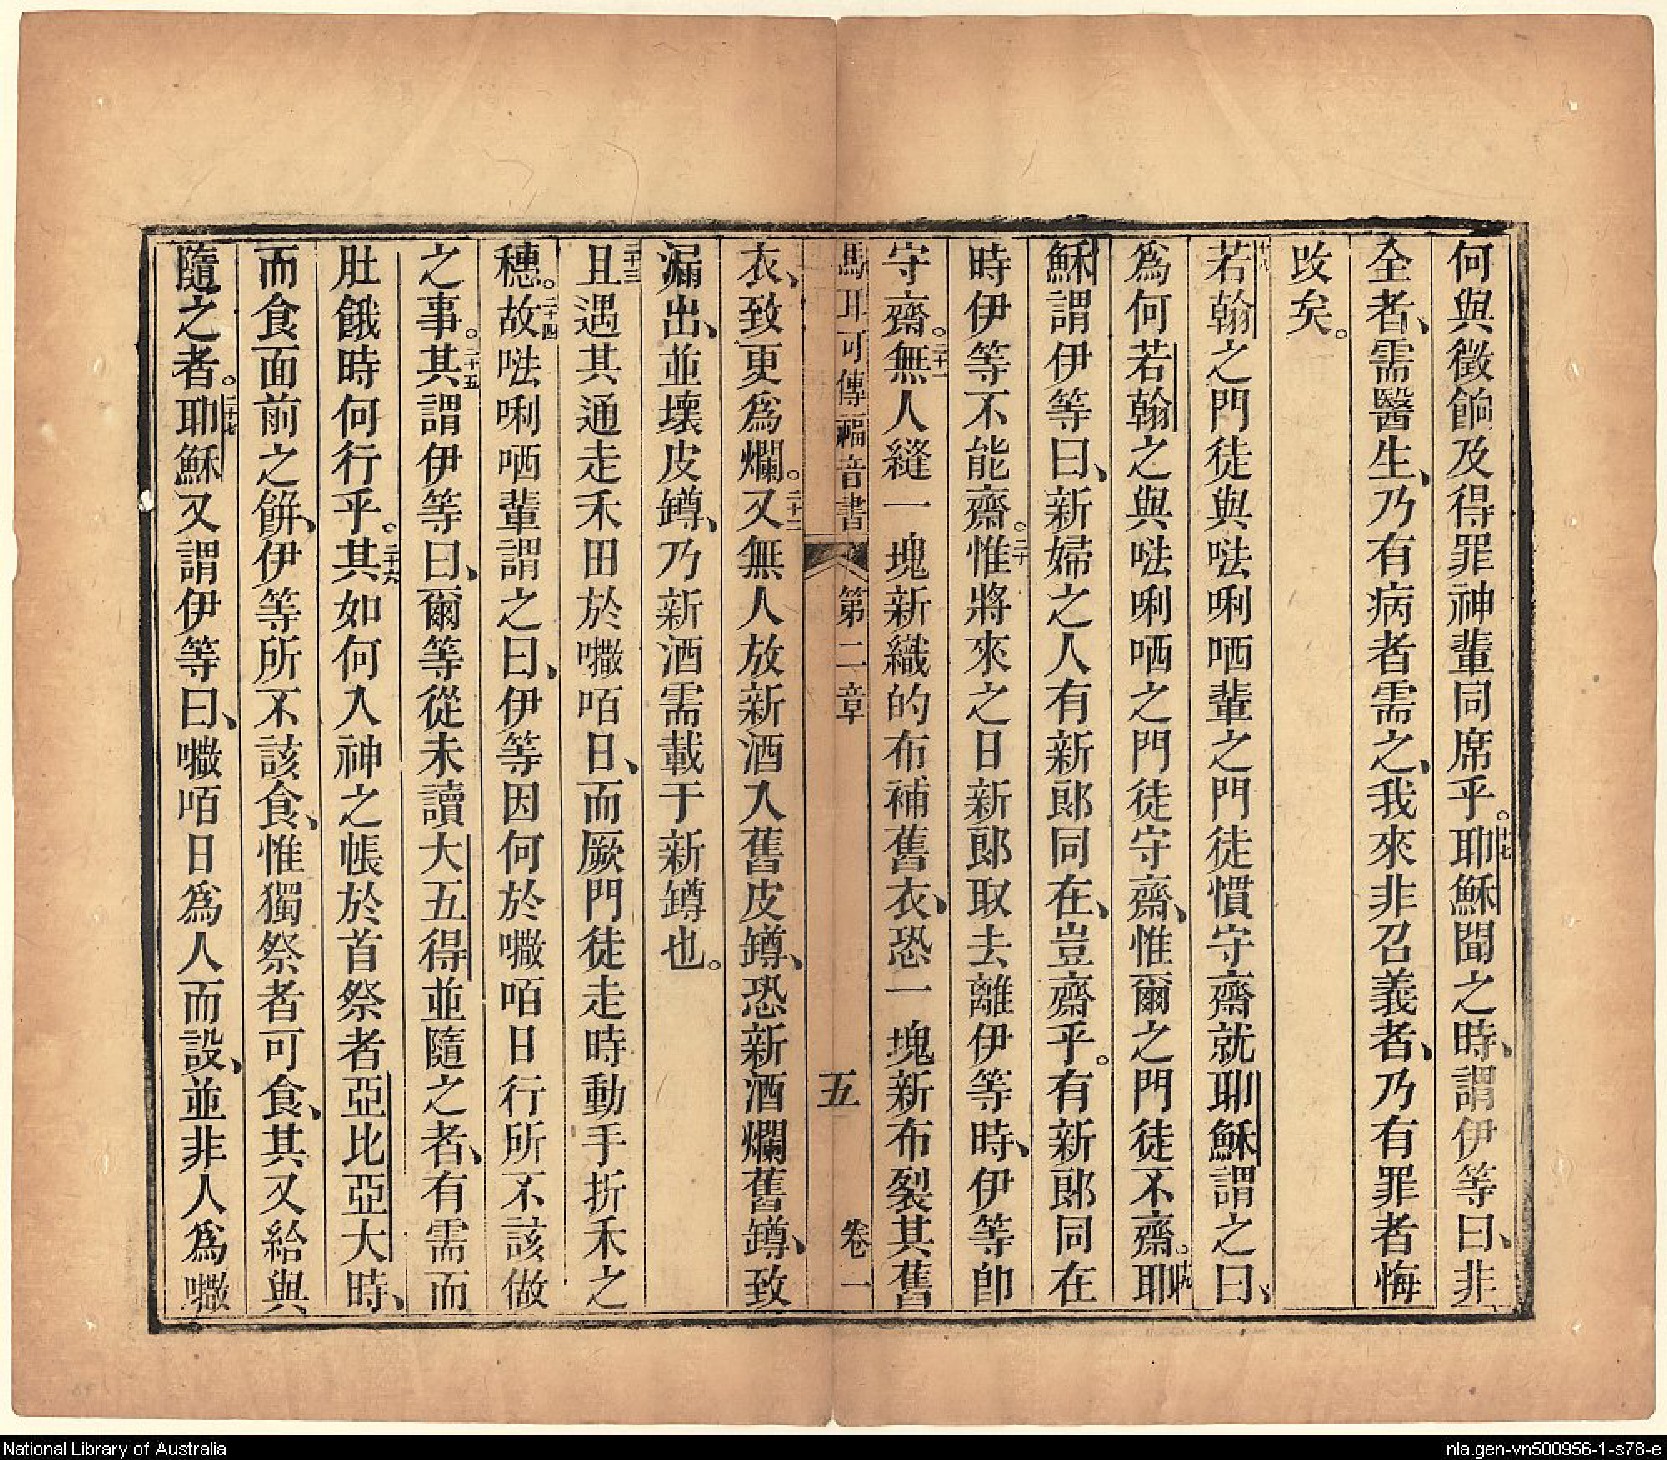 何與徵餉及得罪神輩同席乎。十七耶穌聞之時、謂伊等曰、非
全者、需醫生、乃有病者需之、我來非召義者、乃有罪者悔
改矣。
十八若翰之門徒與𠵽唎哂輩之門徒慣守齋就耶穌謂之曰、
爲何若翰之與𠵽唎哂之門徒守齋、惟爾之門徒不齋。十九耶
穌謂伊等曰、新婦之人有新郎同在、豈齋乎。有新郎同在
時伊等不能齋。二十惟將來之日新郎取去離伊等時、伊等卽
守齋。二十一無人縫一塊新織的布補舊衣、恐一塊新布裂其舊
馬耳可傳福音書 第二章 五 卷一
衣、致更爲爛。二十二又無人放新酒入舊皮罇、恐新酒爛舊罇、致
漏出、並壞皮罇、乃新酒需載于新罇也。
二十三且遇其通走禾田於𡃤咟日、而厥門徒走時動手折禾之
穗。二十四故𠵽唎哂輩謂之曰、伊等因何於𡃤咟日行所不該做
之事。二十五其謂伊等曰、爾等從未讀大五得並隨之者、有需而
肚餓時何行乎。二十六其如何入神之帳於首祭者亞比亞大時、
而食面前之餅、伊等所不該食、惟獨祭者可食、其又給與
隨之者。二十七耶穌又謂伊等曰、𡃤咟日爲人而設、並非人爲𡃤
National Library of Australia
nla.gen-vn500956-1-s78-e